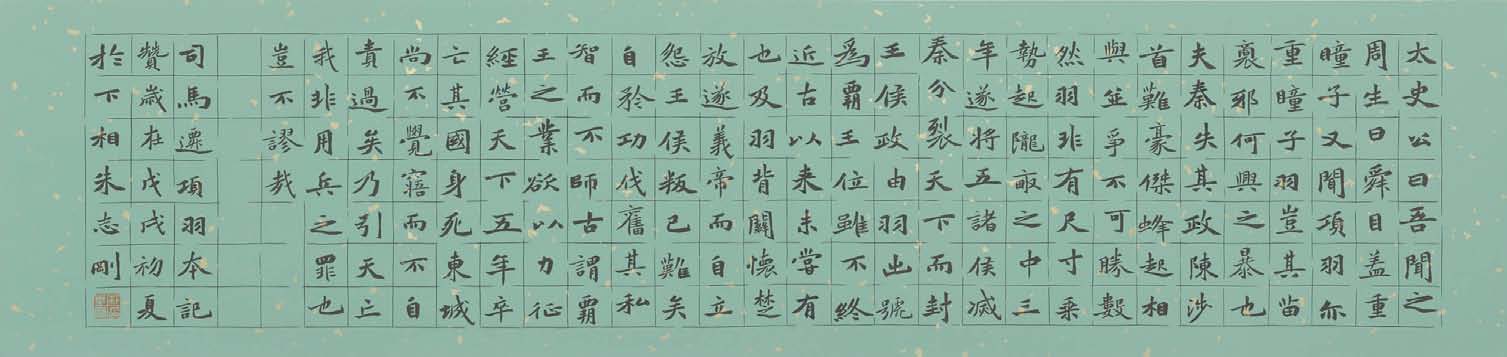 太史公曰吾聞之
周生曰舜目蓋重
瞳子又聞項羽亦
重瞳子羽豈其苗
裔邪何興之暴也
夫秦失其政陳涉
首難豪傑蜂起相
與並爭不可勝數
然羽非有尺寸乘
勢起隴畝之中三
年遂將五諸侯滅
秦分裂天下而封
王侯政由羽出號
爲霸王位雖不終
近古以來未嘗有
也及羽背關懷楚
放遂義帝而自立
怨王侯叛已難矣
自矜功伐奮其私
智而不師古謂霸
王之業欲以力征
經營天下五年卒
亡其國身死東城
尚不覺寤而不自
責過矣乃引天亡
我非用兵之罪也
豈不謬哉
司馬遷項羽本記
贊歲在戊戌初夏
於下相朱志剛